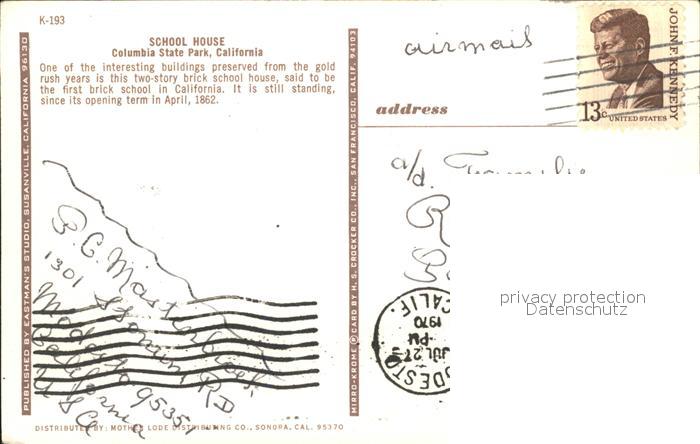 K-193
SCHOOL HOUSE
Columbia State Park, California
One of the interesting buildings preserved from the gold
rush years is this two-story brick school house, said to be
the first brick school in California. It is still standing,
since its opening term in April, 1862.
PUBLISHED BY EASTMAN'S STUDIO, SUSANVILLE, CALIFORNIA 96130
1301
RD
Modesto 95351
California
USA
DISTRIBUTED BY: MOTHER LODE DISTRIBUTING CO., SONORA, CAL. 95370
MIRRO-KROME ® CARD BY H. S. CROCKER CO., INC., SAN FRANCISCO, CALIF. 94103
airmail
address
JOHN F. KENNEDY
13c
UNITED STATES
a/d.
privacy protection
Datenschutz
CALIF.
1970
PM
JUL 27
ODESTO